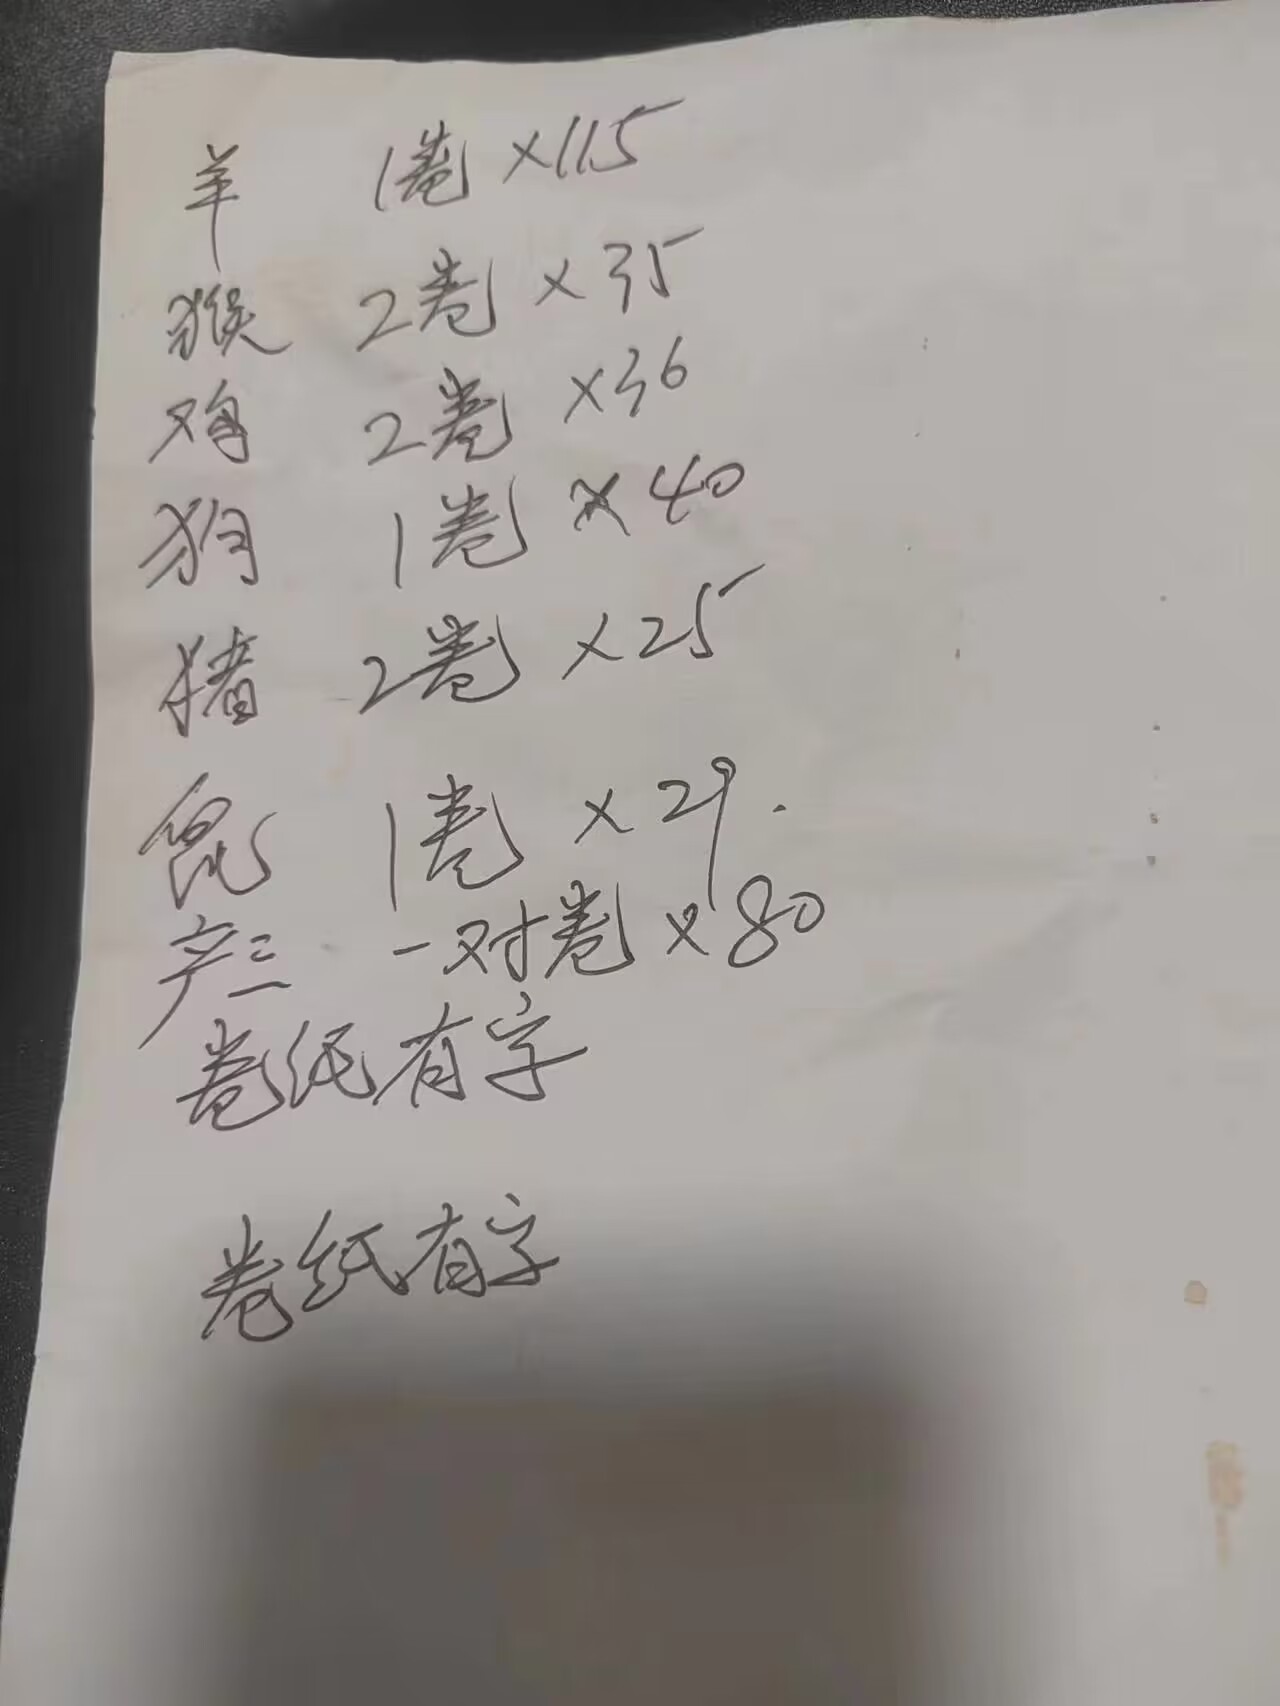 羊 1卷 ×115
猴 2卷 ×35
鸡 2卷 ×36
狗 1卷 ×40
猪 2卷 ×25
鼠 1卷 ×29.
产三 一对卷 ×80
卷纸有字
卷纸有字